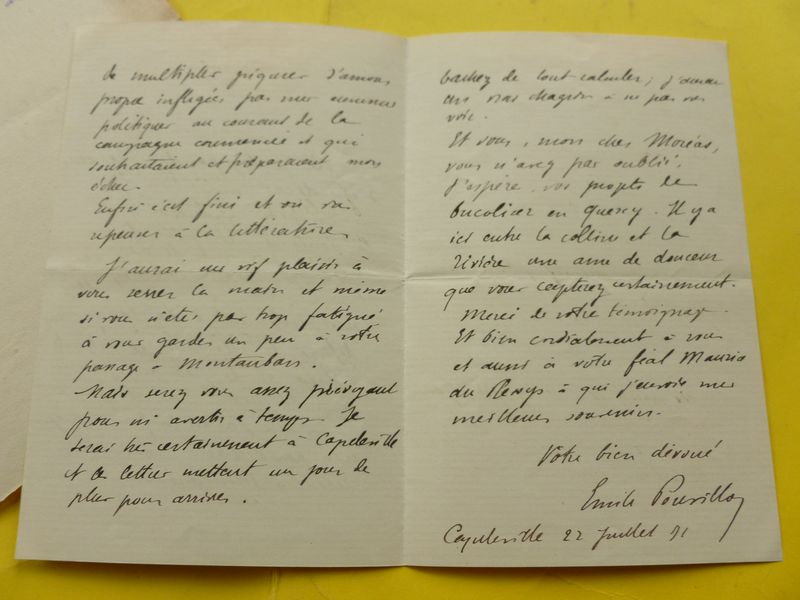 de multiples piqures d'amour
propre infligées par mes ennemis
politiques au courant de la
campagne commencée et qui
souhaitaient et préparaient mon
échec.
Enfin c'est fini et on va
repenser à la littérature.
J'aurai un vif plaisir à
vous serrer la main et même
si vous n'êtes pas trop fatigué
à vous garder un peu à votre
passage à Montauban.
Mais serez vous assez prévoyant
pour m'avertir à temps. Je
serai très certainement à Capelevielle
et les lettres mettent un jour de
plus pour arriver.
tachez de tout calculer; j'aurais
un vrai chagrin à ne pas vous
voir.
Et vous, mon cher Moréas,
vous n'avez pas oublié,
j'espère, vos projets de
bucoliser en Quercy. Il y a
ici entre la colline et la
rivière une ame de douceur
que vous capterez certainement.
Merci de votre témoignage.
Et bien cordialement à vous
et aussi à votre féal Maurice
du Plessys à qui j'envoie mes
meilleurs souvenirs.
Votre bien dévoué
Emile Pouvillon
22 Juillet 91